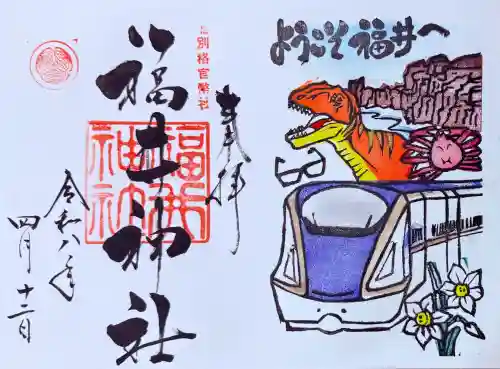 ようこそ福井へ
奉拝
元別格官幣社
福井神社
福井神社
令和八年
四月十二日